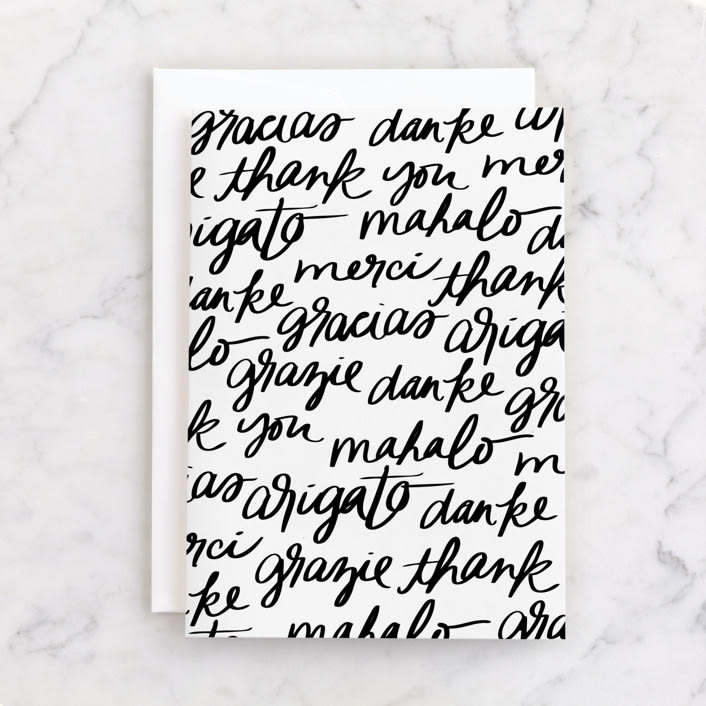 gracias danke
thank you mer
igato mahalo d
anke merci thank
lo gracias ariga
grazie danke gra
k you mahalo m
ias arigato danke
rci grazie thank
ke mahalo gra